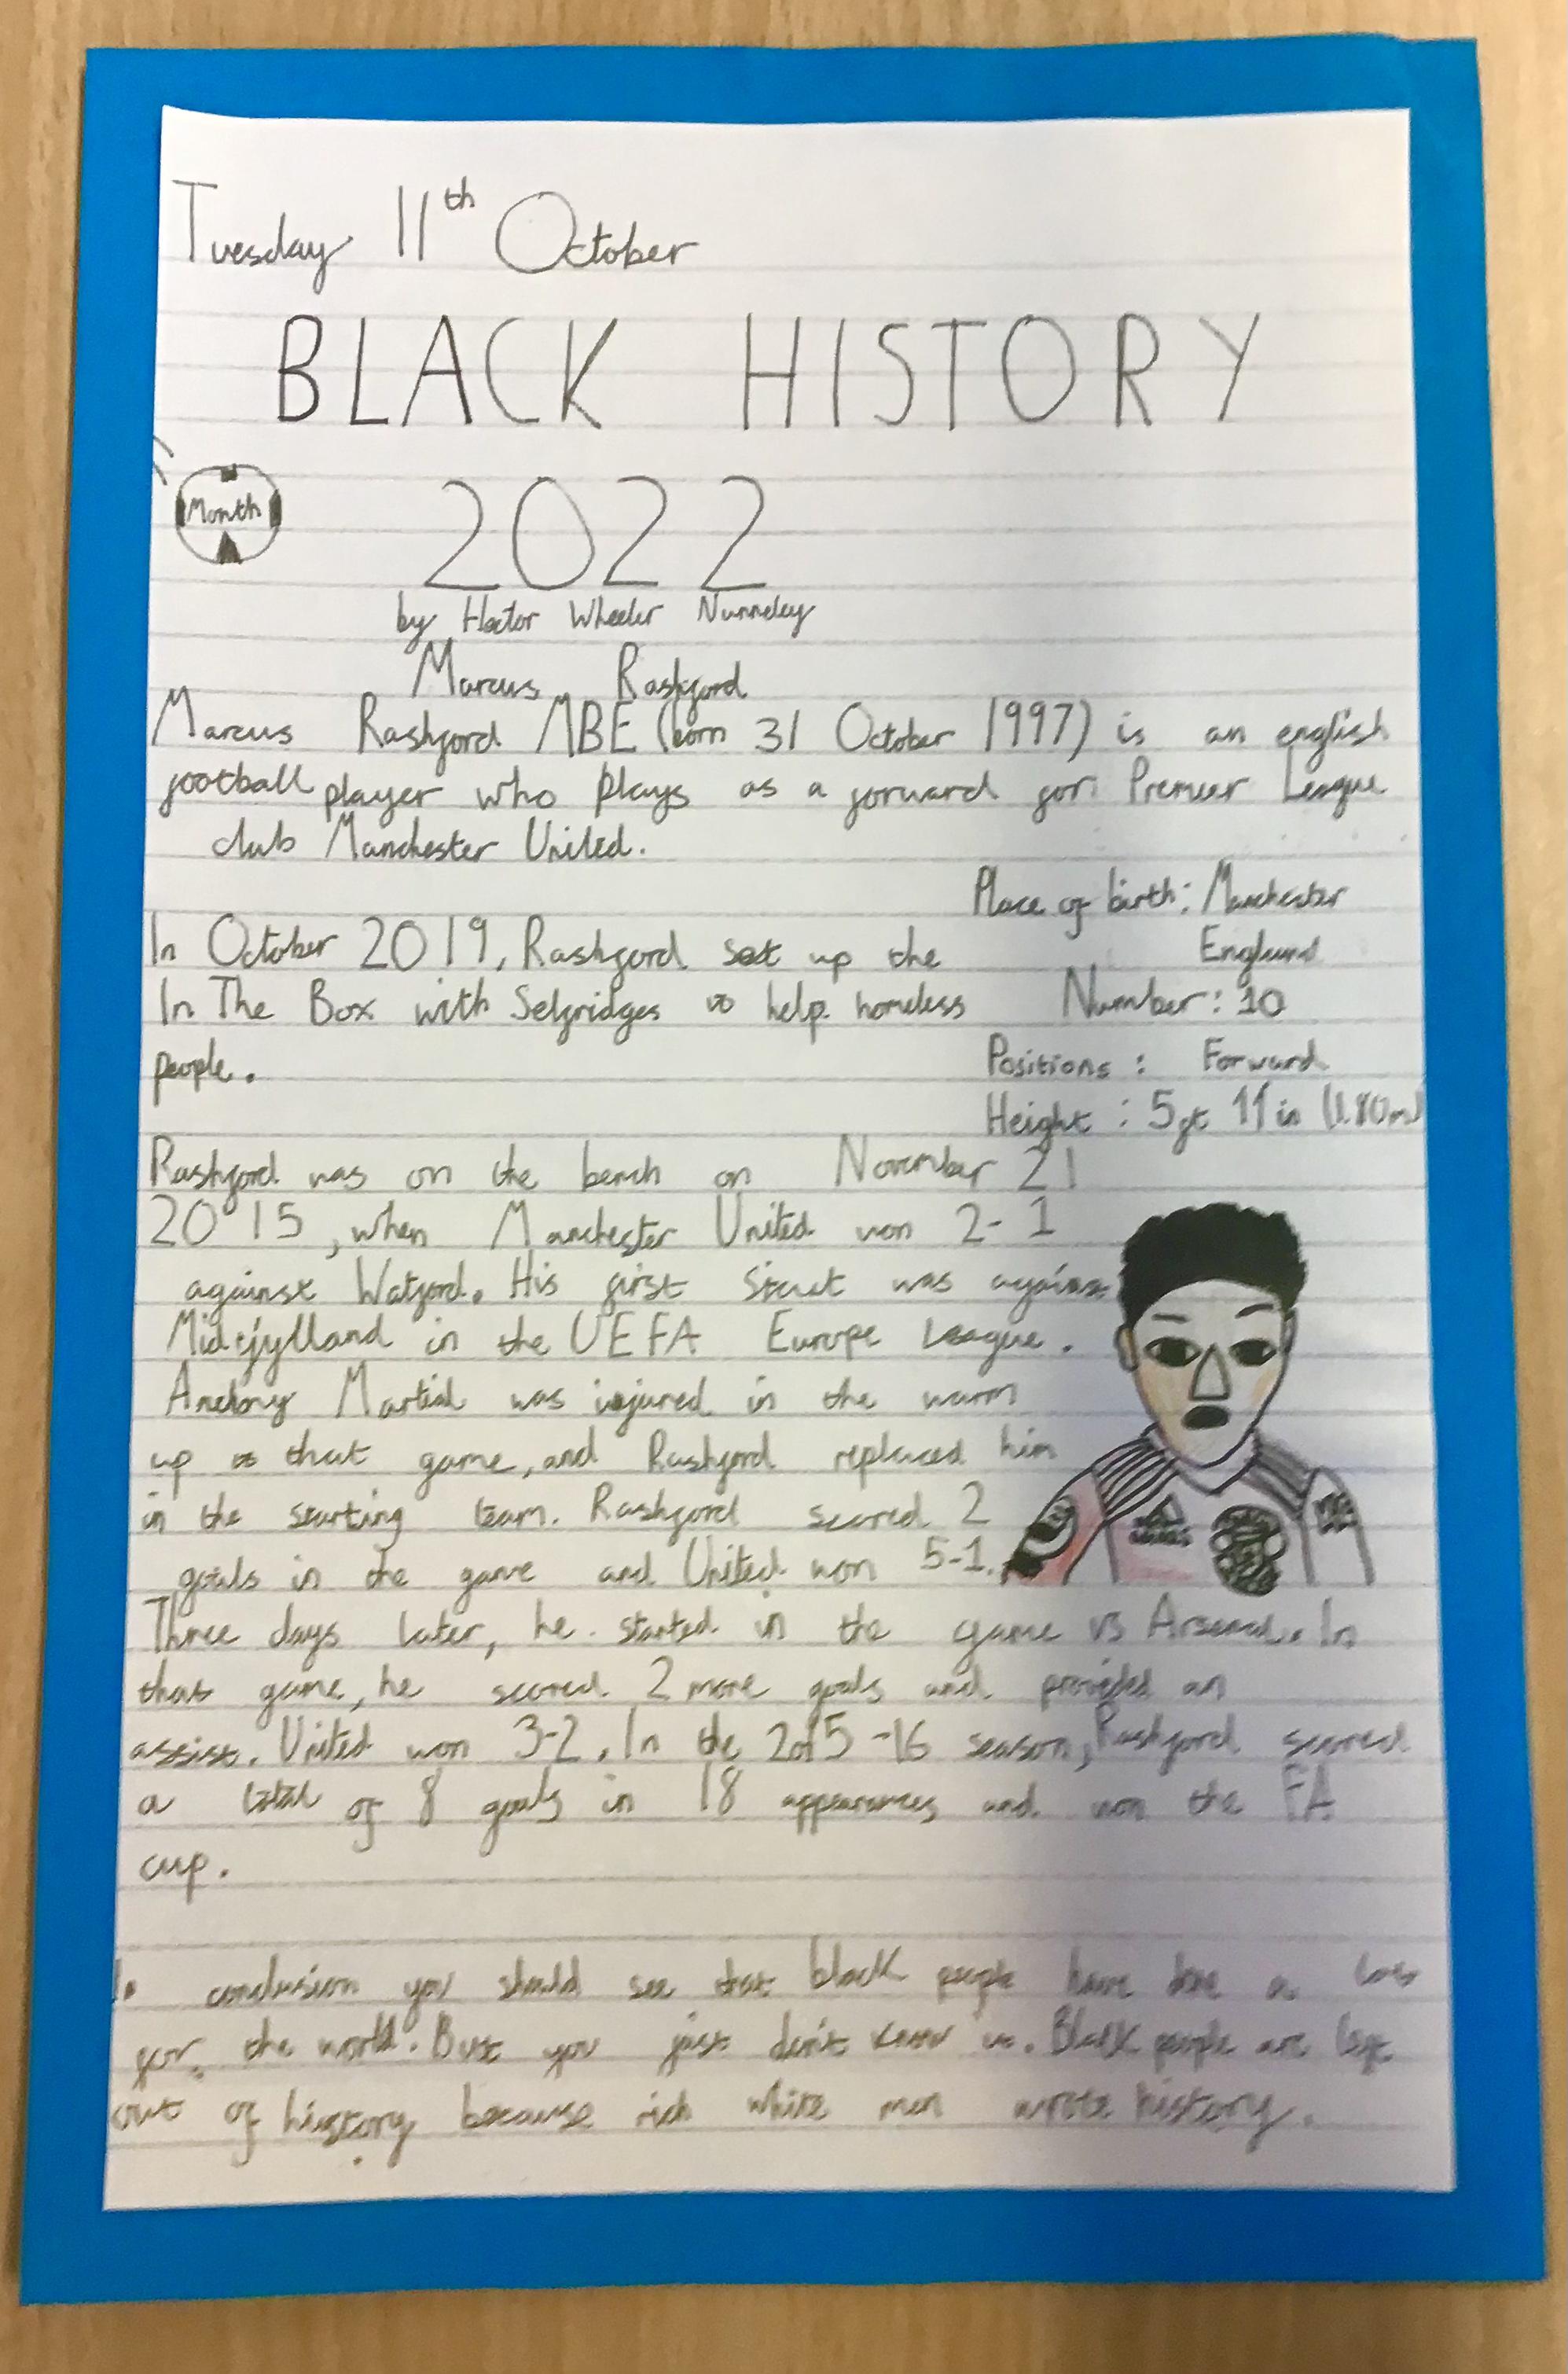 Tuesday 11th October
BLACK HISTORY
Month 2022
by Hector Wheeler Nunneley
Marcus Rashford
Marcus Rashford MBE (born 31 October 1997) is an english
football player who plays as a forward for Premier League
club Manchester United.
Place of birth: Manchester
England
Number: 10
Positions: Forward
Height: 5ft 11in (1.80m)
In October 2019, Rashford set up the
In The Box with Selfridges to help homeless
people.
Rashford was on the bench on November 21
2015, when Manchester United won 2-1
against Watford. His first start was against
Midtjylland in the UEFA Europe League.
Antony Martial was injured in the warm
up to that game, and Rashford replaced him
in the starting team. Rashford scored 2
goals in the game and United won 5-1.
Three days later, he started in the game vs Arsenal. In
that game, he scored 2 more goals and provided an
assist. United won 3-2. In the 2015-16 season, Rashford scored
a total of 8 goals in 18 appearances and won the FA
cup.
adidas
In conclusion you should see that black people have done a lot
for the world. But you just don't know it. Black people are left
out of history because rich white men wrote history.